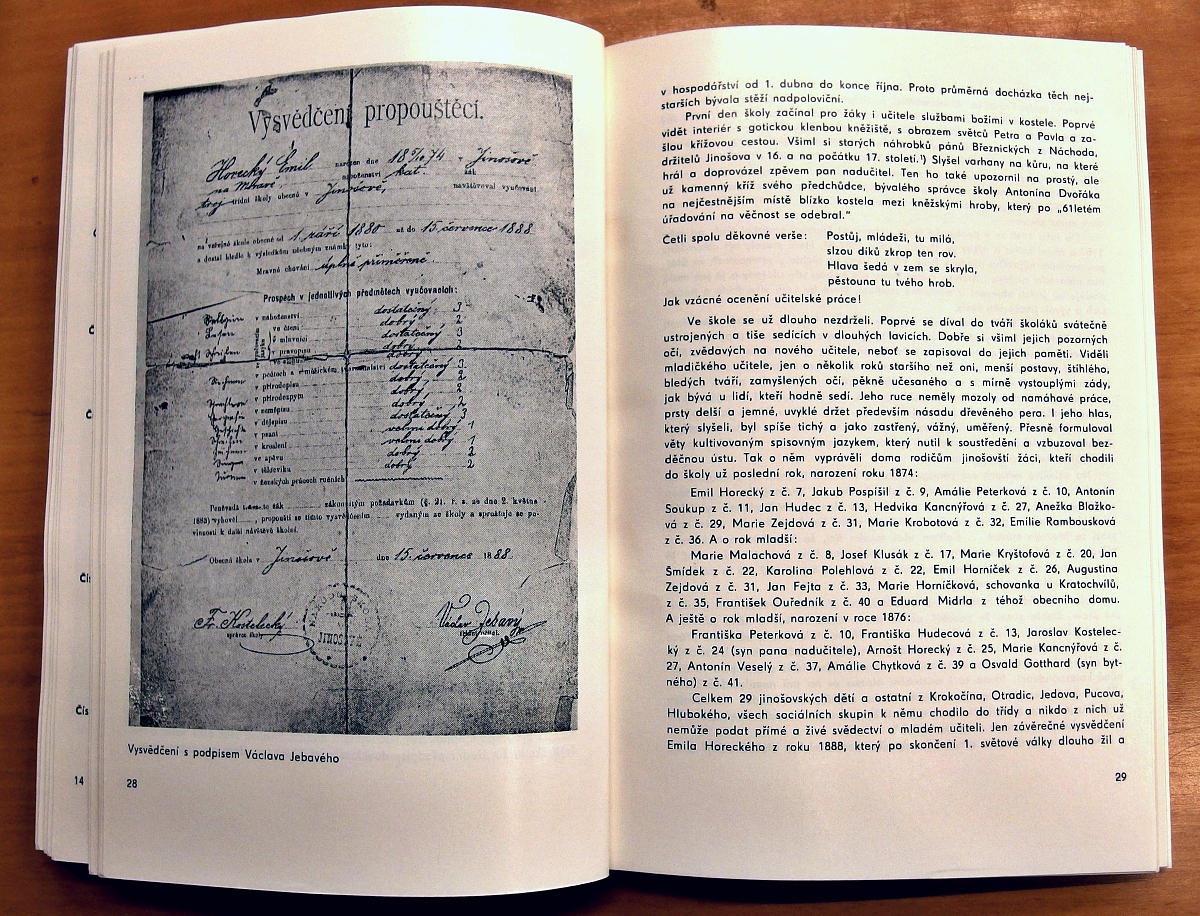 Vysvědčení propouštěcí.
Horecký Emil narozen dne 18 5/10 74 v Jinošově
na Moravě náboženství kat. žák
troj třídní školy obecné v Jinošově, navštěvoval vyučování
na veřejné škole obecné od 1. září 1880 až do 15. července 1888
a dostal hledíc k výsledkům učebným známky tyto:
Mravné chování úplně přiměřené.
Prospěch v jednotlivých předmětech vyučovacích:
v náboženství dostatečný 3
ve čtení dobrý 2
v mluvnici dostatečný 3
v pravopisu dobrý 2
v počtech a v měřickém tvaroznalství dostatečný 3
v přírodopisu dobrý 2
v přírodozpytu dobrý 2
v zeměpisu dobrý 2
v dějepisu dostatečný 3
v psaní velmi dobrý 1
v kreslení velmi dobrý 1
ve zpěvu dobrý 2
v tělocviku dobrý 2
v ženských pracech ručních
Poněvadž žák zákonitým požadavkům (§. 21. ř. z. ze dne 2. května
1883) vyhověl, propouští se tímto vysvědčením vydaným ze školy a sprošťuje se po-
vinnosti k další návštěvě školní.
Obecná škola v Jinošově dne 15. července 1888.
Fr. Kostelecký
správce školy
JINOŠOVĚ
Václav Jebavý
třídní učitel.
Vysvědčení s podpisem Václava Jebavého
Čís
14
28
v hospodářství od 1. dubna do konce října. Proto průměrná docházka těch nej-
starších bývala stěží nadpoloviční.
První den školy začínal pro žáky i učitele službami božími v kostele. Poprvé
vidět interiér s gotickou klenbou kněžiště, s obrazem světců Petra a Pavla a za-
šlou křížovou cestou. Všiml si starých náhrobků pánů Březnických z Náchoda,
držitelů Jinošova v 16. a na počátku 17. století.¹) Slyšel varhany na kůru, na které
hrál a doprovázel zpěvem pan nadučitel. Ten ho také upozornil na prostý, ale
už kamenný kříž svého předchůdce, bývalého správce školy Antonína Dvořáka
na nejčestnějším místě blízko kostela mezi kněžskými hroby, který po „61letém
úřadování na věčnost se odebral."
Četli spolu děkovné verše: Postůj, mládeži, tu milá,
slzou díků zkrop ten rov.
Hlava šedá v zem se skryla,
pěstouna tu tvého hrob.
Jak vzácné ocenění učitelské práce!
Ve škole se už dlouho nezdrželi. Poprvé se díval do tváří školáků svátečně
ustrojených a tiše sedících v dlouhých lavicích. Dobře si všiml jejich pozorných
očí, zvědavých na nového učitele, neboť se zapisoval do jejich paměti. Viděli
mladičkého učitele, jen o několik roků staršího než oni, menší postavy, štíhlého,
bledých tváří, zamyšlených očí, pěkně učesaného a s mírně vystouplými zády,
jak bývá u lidí, kteří hodně sedí. Jeho ruce neměly mozoly od namáhavé práce,
prsty delší a jemné, uvyklé držet především násadu dřevěného pera. I jeho hlas,
který slyšeli, byl spíše tichý a jako zastřený, vážný, uměřený. Přesně formuloval
věty kultivovaným spisovným jazykem, který nutil k soustředění a vzbuzoval bez-
děčnou ústu. Tak o něm vyprávěli doma rodičům jinošovští žáci, kteří chodili
do školy už poslední rok, narození roku 1874:
Emil Horecký z č. 7, Jakub Pospíšil z č. 9, Amálie Peterková z č. 10, Antonín
Soukup z č. 11, Jan Hudec z č. 13, Hedvika Kancnýřová z č. 27, Anežka Blažko-
vá z č. 29, Marie Zejdová z č. 31, Marie Krobotová z č. 32, Emílie Rambousková
z č. 36. A o rok mladší:
Marie Malachová z č. 8, Josef Klusák z č. 17, Marie Kryštofová z č. 20, Jan
Šmídek z č. 22, Karolina Polehlová z č. 22, Emil Horníček z č. 26, Augustina
Zejdová z č. 31, Jan Fejta z č. 33, Marie Horníčková, schovanka u Kratochvílů,
z č. 35, František Ouředník z č. 40 a Eduard Midrla z téhož obecního domu.
A ještě o rok mladší, narození v roce 1876:
Františka Peterková z č. 10, Františka Hudecová z č. 13, Jaroslav Kostelec-
ký z č. 24 (syn pana nadučitele), Arnošt Horecký z č. 25, Marie Kancnýřová z č.
27, Antonín Veselý z č. 37, Amálie Chytková z č. 39 a Osvald Gotthard (syn byt-
ného) z č. 41.
Celkem 29 jinošovských dětí a ostatní z Krokočína, Otradic, Jedova, Pucova,
Hlubokého, všech sociálních skupin k němu chodilo do třídy a nikdo z nich už
nemůže podat přímé a živé svědectví o mladém učiteli. Jen závěrečné vysvědčení
Emila Horeckého z roku 1888, který po skončení 1. světové války dlouho žil a
29